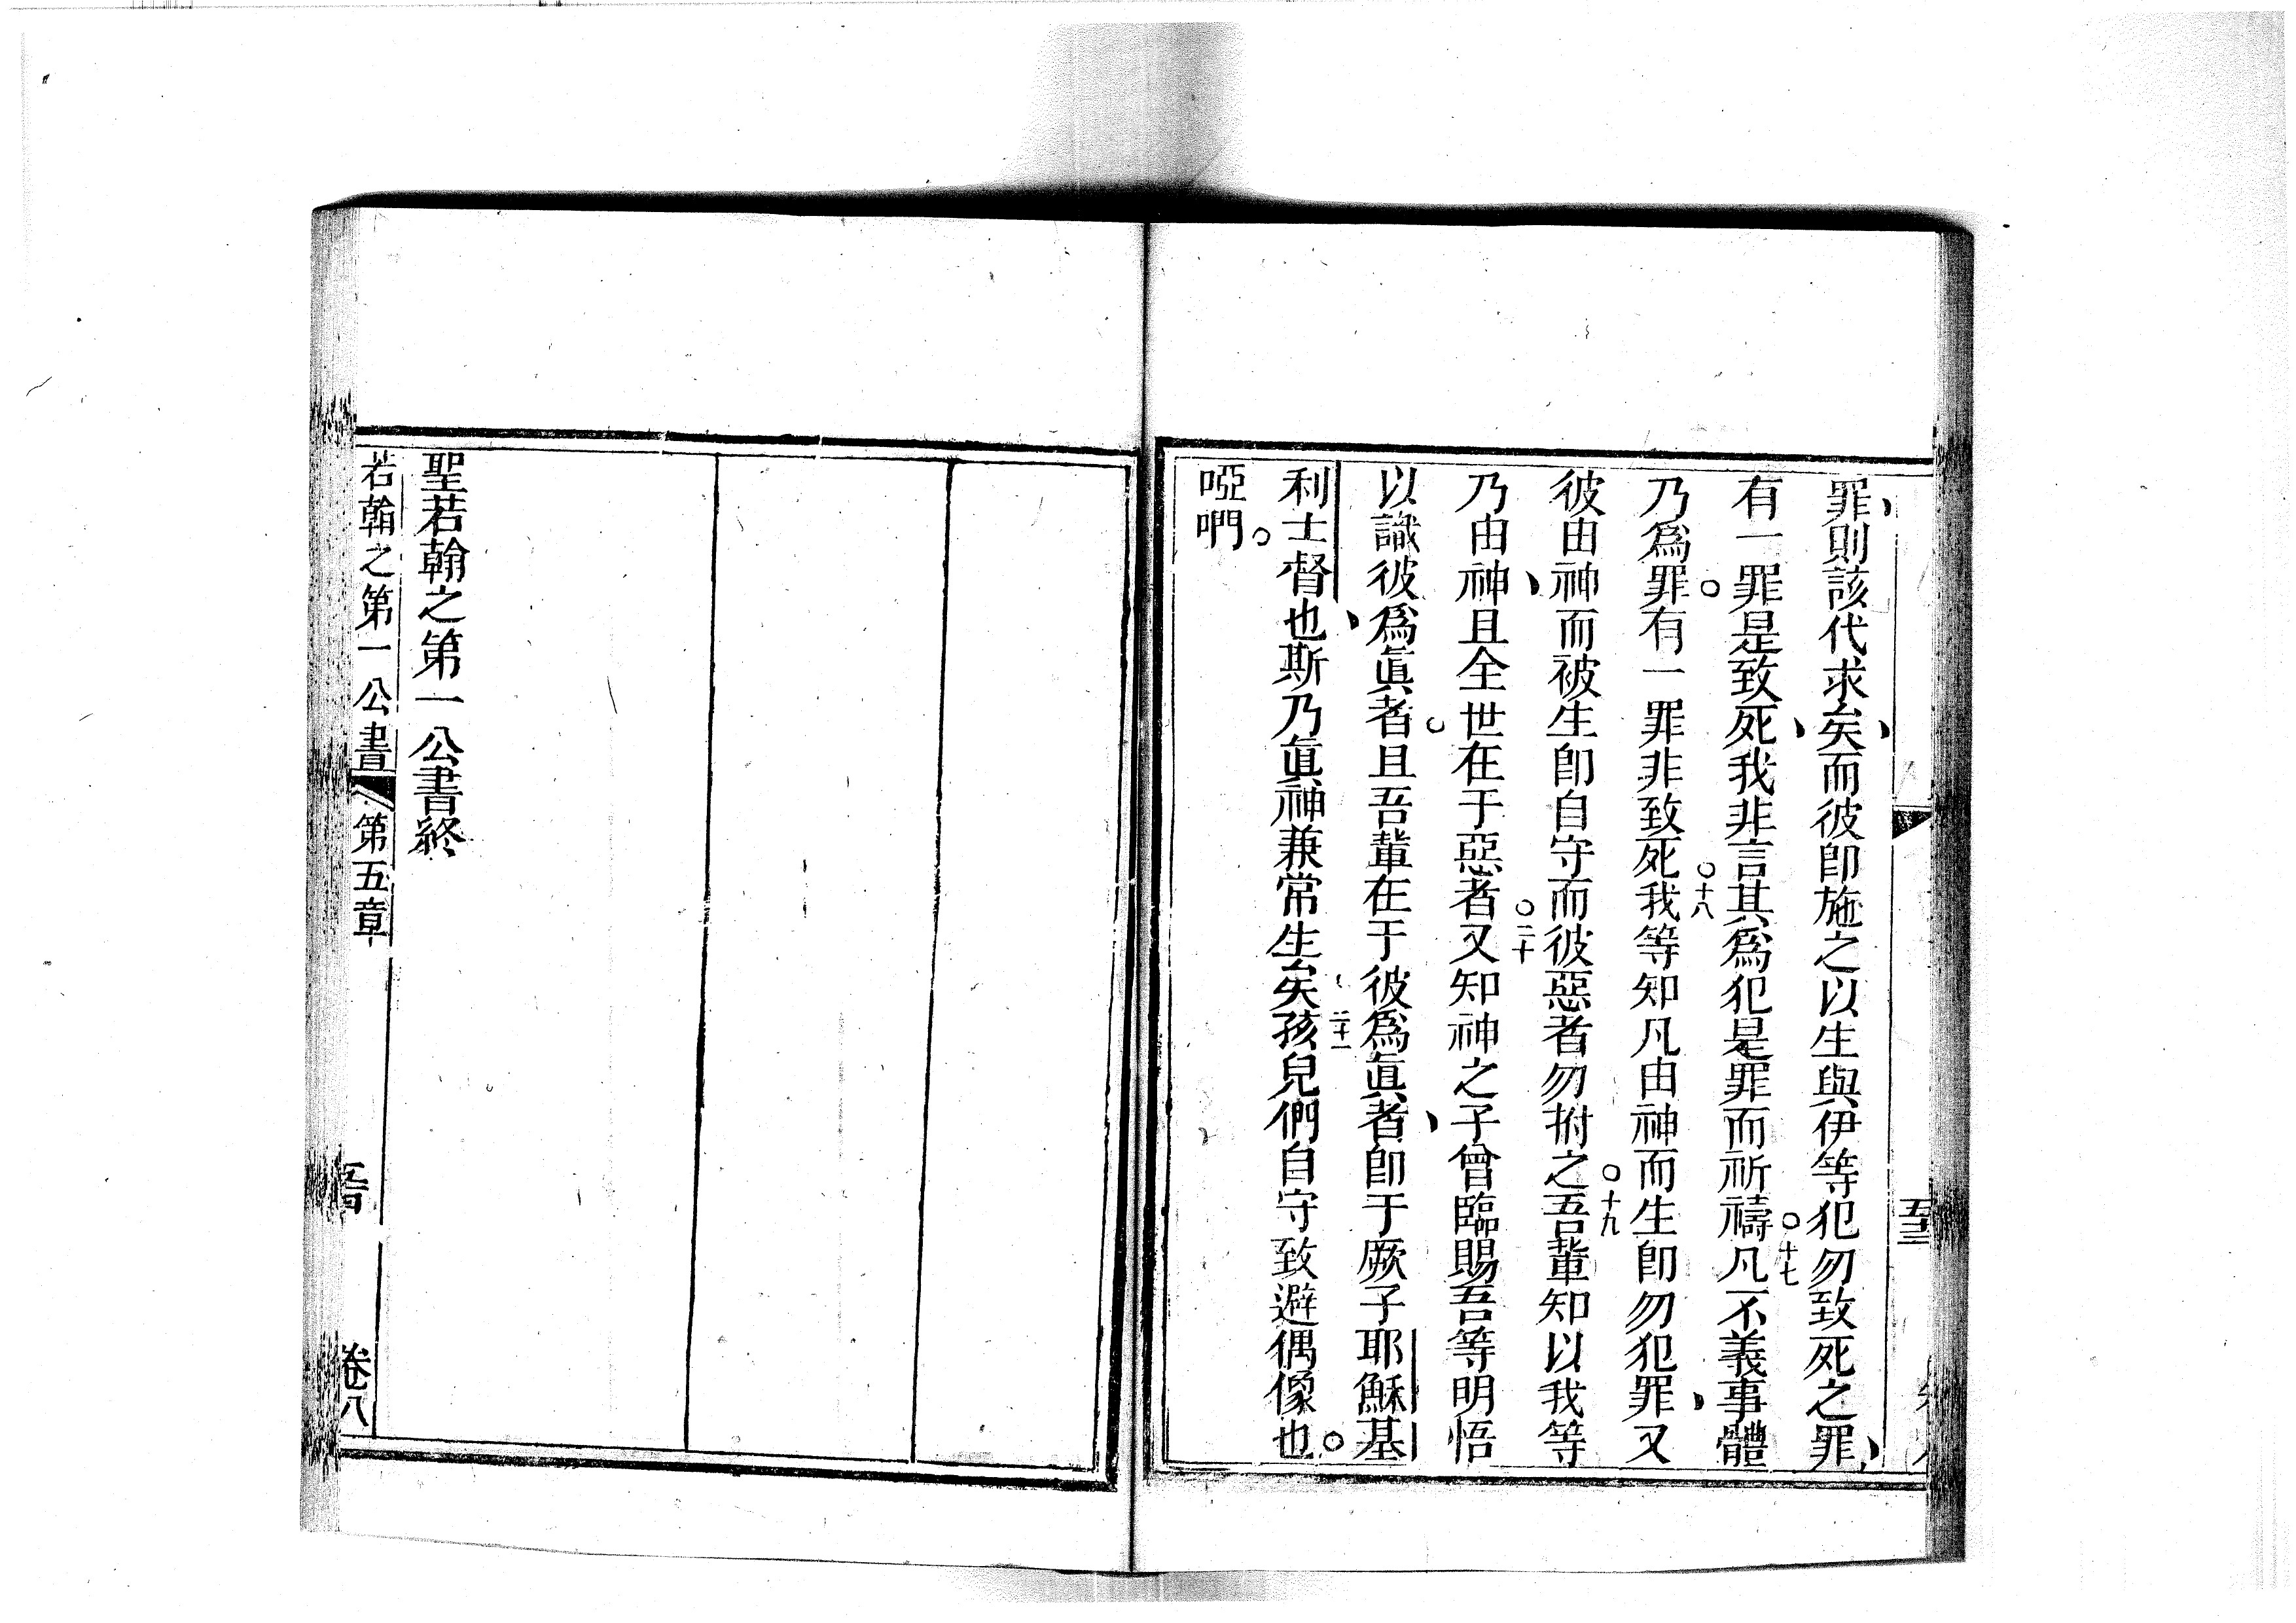 罪、則該代求矣、而彼卽施之以生與伊等犯勿致死之罪、
有一罪是致死、我非言其爲犯是罪而祈禱○十七凡不義事體
乃爲罪。有一罪非致死○十八我等知凡由神而生卽勿犯罪、又
彼由神而被生卽自守而彼惡者勿拊之○十九吾輩知以我等
乃由神、且全世在于惡者○二十又知神之子曾臨賜吾等明悟
以識彼爲眞者。且吾輩在于彼爲眞者、卽于厥子耶穌基
利士督也、斯乃眞神兼常生矣、二十一孩兒們自守致避偶像也。
啞吧。
聖若翰之第一公書終
若翰之第一公書 第五章 卷八